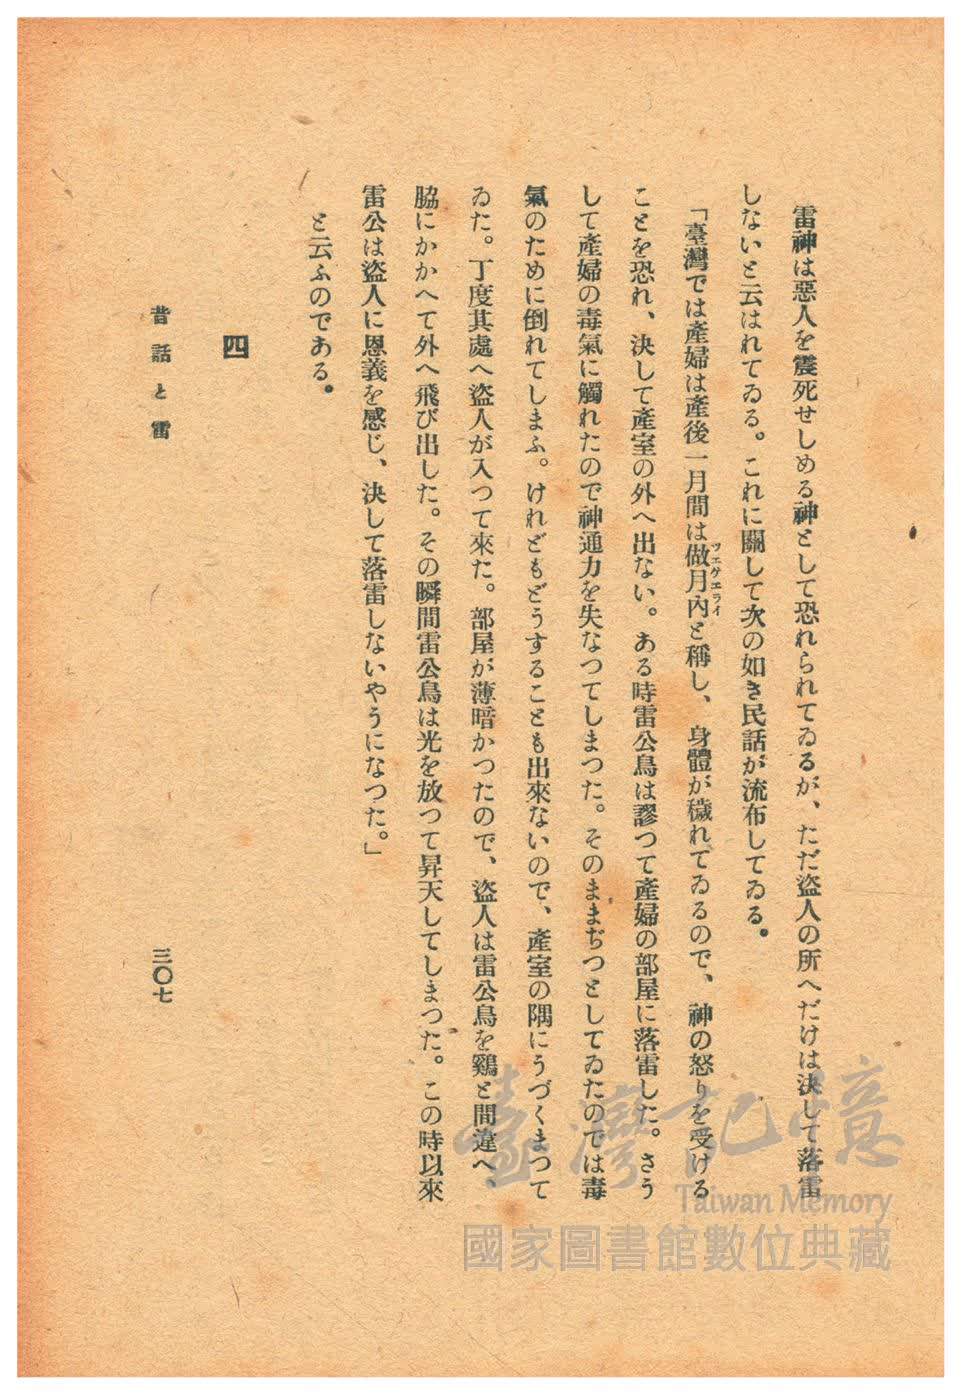 雷神は惡人を震死せしめる神として恐れられてゐるが、ただ盜人の所へだけは決して落雷
しないと云はれてゐる。これに關して次の如き民話が流布してゐる。
「臺灣では產婦は產後一月間は做月內と稱し、身體が穢れてゐるので、神の怒りを受ける
ツエゲエライ
ことを恐れ、決して產室の外へ出ない。ある時雷公鳥は謬つて產婦の部屋に落雷した。さう
して產婦の毒氣に觸れたので神通力を失なつてしまつた。そのままぢつとしてゐたのでは毒
氣のために倒れてしまふ。けれどもどうすることも出來ないので、產室の隅にうづくまつて
ゐた。丁度其處へ盜人が入つて來た。部屋が薄暗かつたので、盜人は雷公鳥を鷄と間違へ、
脇にかかへて外へ飛び出した。その瞬間雷公鳥は光を放つて昇天してしまつた。この時以來
雷公は盜人に恩義を感じ、決して落雷しないやうになつた。」
と云ふのである。
四
昔話と雷
三〇七
臺灣記憶
Taiwan Memory
國家圖書館數位典藏